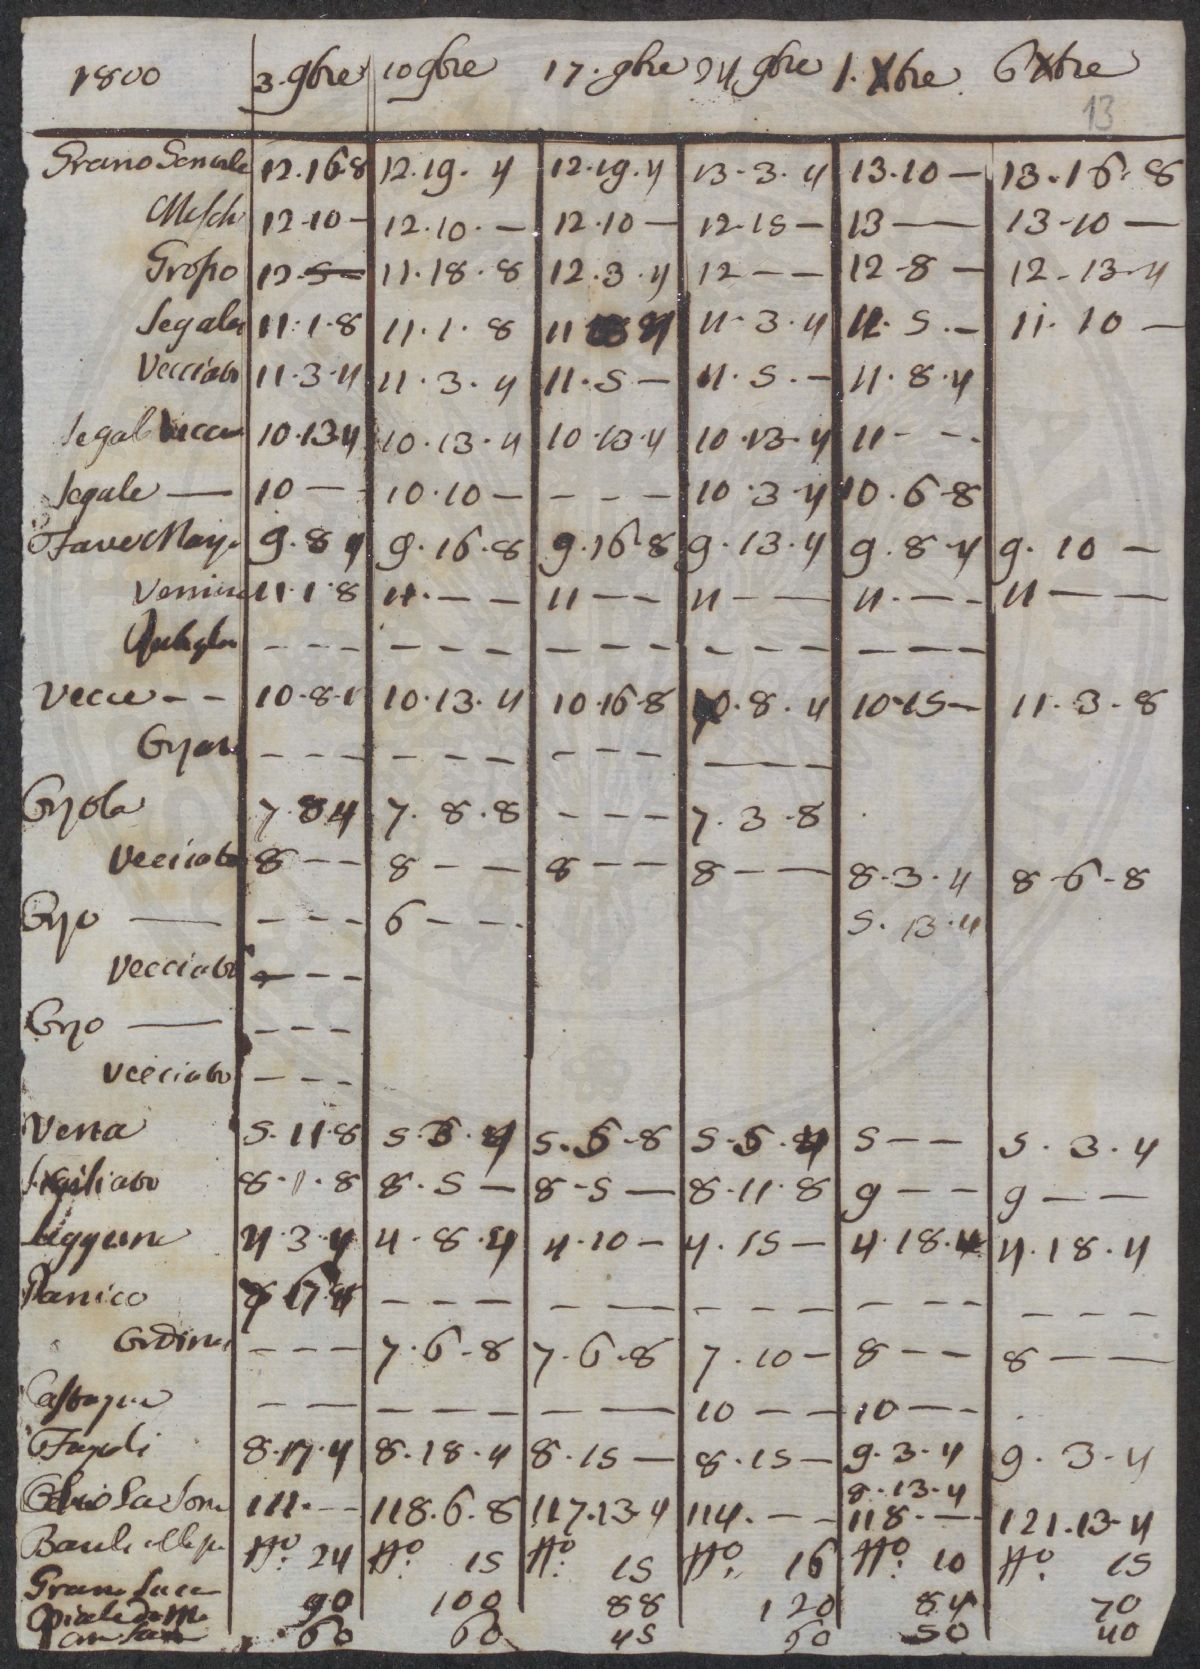 1800 3. 9bre 10 9bre 17. 9bre 24 9bre 1. Xbre 6 Xbre
13
Grano Gentile 12.16.8 12.19.4 12.19.4 13.3.4 13.10 — 13.16.8
Misch 12.10 — 12.10. — 12.10 — 12.15 — 13 — 13.10 —
Groso 12.5 — 11.18.8 12.3.4 12 — — 12.8 — 12.13.4
Segala 11.1.8 11.1.8 11 11.3.4 11.5. — 11.10 —
Vecciato 11.3.4 11.3.4 11.5 — 11.5. — 11.8.4
Segal 10.13.4 10.13.4 10.13.4 10.13.4 11 - - -
Segale — 10 — 10.10 — - - - 10.3.4 10.6.8
Fave 9.8.4 9.16.8 9.16.8 9.13.4 9.8.4 9.10 —
11.1.8 11. — — 11 — — 11 — — 11. — — 11 — —
- - - - - - - - - - - - - - -
Vecce - - 10.8. 10.13.4 10.16.8 10.8.4 10.15 — 11.3.8
- - - - - - - - - —
Orzola 7.8.4 7.8.8 - - - 7.3.8
Vecciato 8 — — 8 — — 8 — — 8 — — 8.3.4 8.6.8
Orzo — - - - 6 - - - 5.13.4
Vecciato - - -
Orzo — - - -
Vecciato - - -
Vena 5.11.8 5.6.4 5.6.8 5.6.4 5 — — 5.3.4
8.1.8 8.5 — 8.5 — 8.11.8 9 — — 9 — —
Leggiera 4.3.4 4.8.4 4.10 — 4.15 — 4.18.4 4.18.4
Panico - - - - - - - - - - - - - - -
Ordina - - - 7.6.8 7.6.8 7.10 — 8 — — 8 — —
Castagne — — — — — — — 10 — — 10 — —
Fagioli 8.17.4 8.18.4 8.15 — 8.15 — 9.3.4 9.3.4
8.13.4
Olio La Soma 111. — 118.6.8 117.13.4 114. — — 118. — 121.13.4
No. 24 No. 15 No. 15 No. 16 No. 10 No. 15
Grano 90 100 88 120 84 70
60 60 45 60 50 40